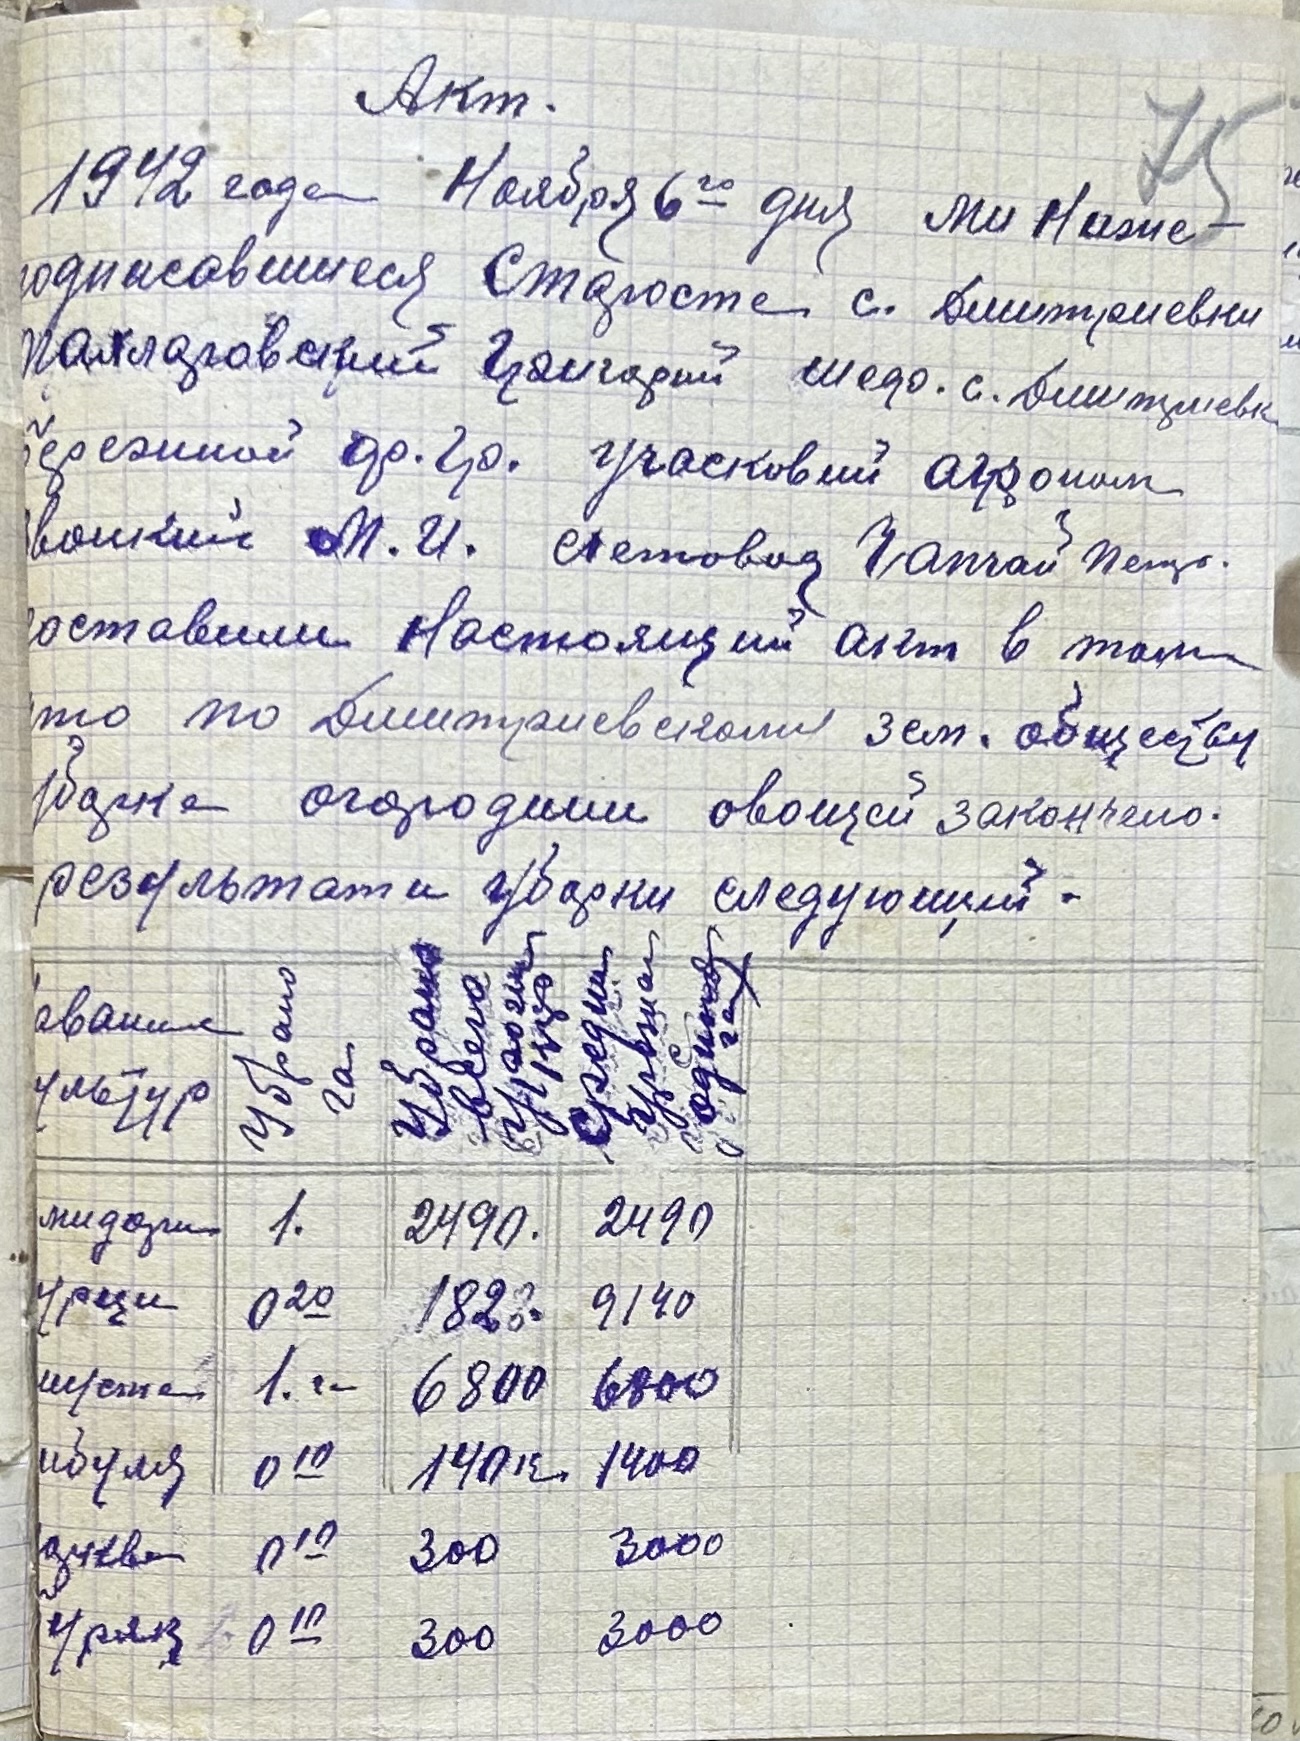 Акт.
75
1942 года Ноября 6го дня ми Ниже-
подписавшиеся Староста с. Дмитриевки
Григорий шедо. с. Дмитриевк
Бережной ф. Гр. учасковий агроном
М. И. счетовод Чапчай Петр.
составили Настоящий акт в том
что по Дмитриевскому зем. обществу
уборка огородним овощей закончено.
результати уборки следующий.
ования
ультур
Убрано
га
Убрано
всего
урожай
Средни
урожай
с одного
га
мидори 1. 2490. 2490
урци 0 20 182 9140
пуста 1. га 6800 6800
ибуля 0 10 140 к. 1400
0 10 300 3000
уряк 0 10 300 3000